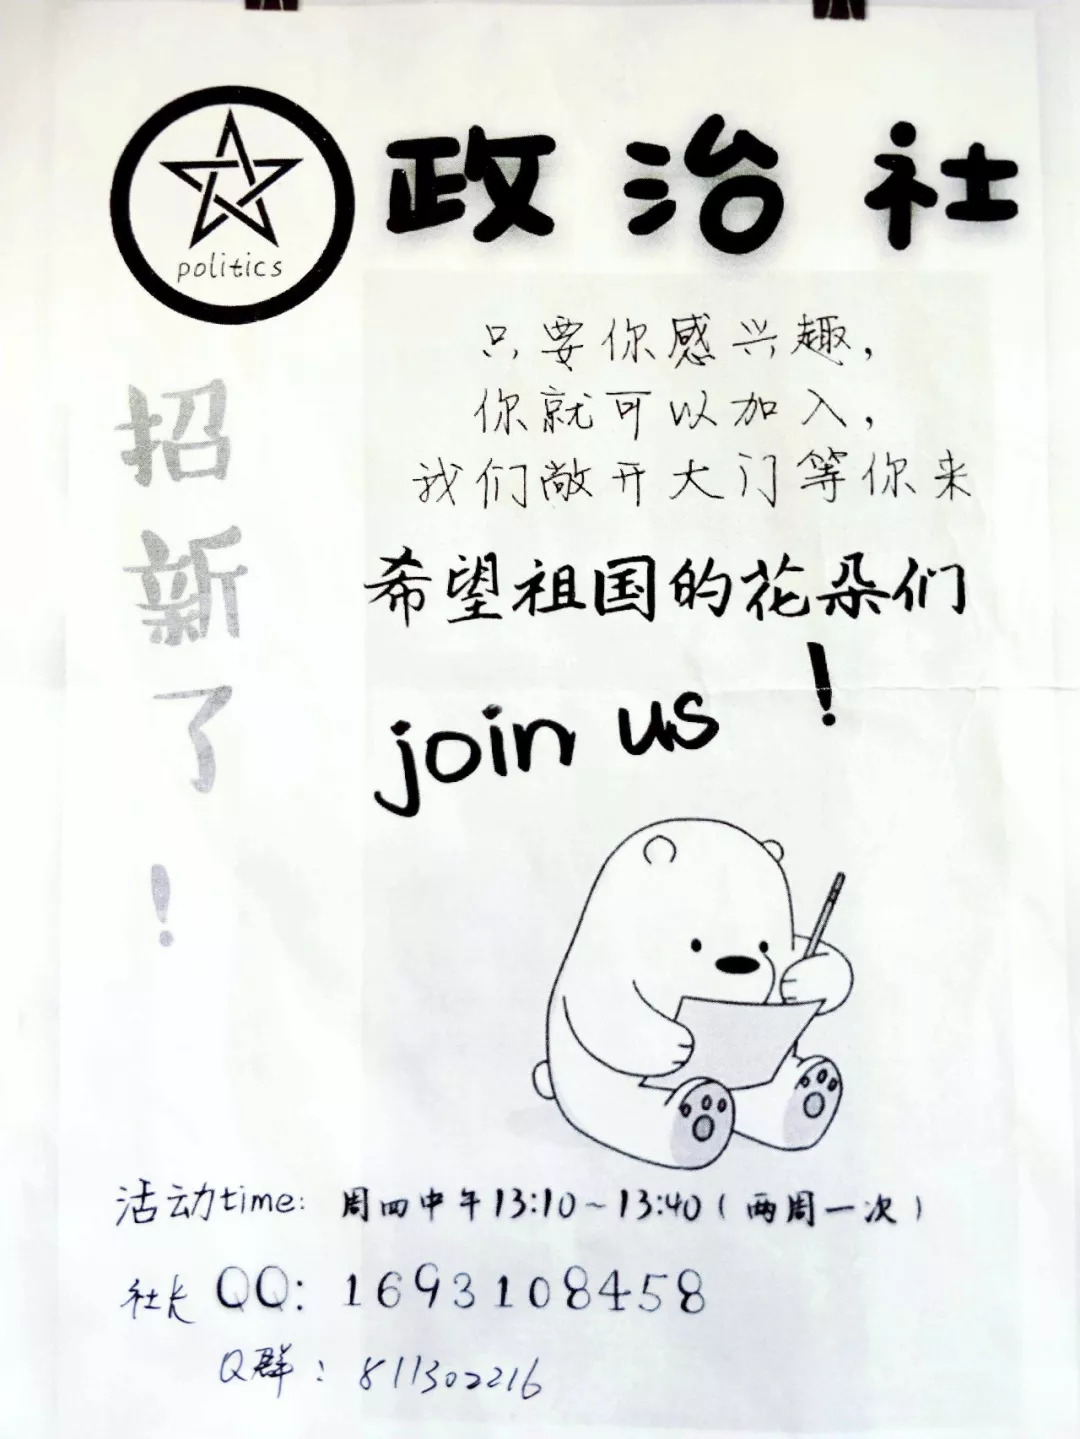 政治社
politics
招新了!
只要你感兴趣,
你就可以加入,
我们敞开大门等你来
希望祖国的花朵们
join us !
活动time: 周四中午13:10~13:40(两周一次)
社长QQ: 1693108458
Q群: 811302216